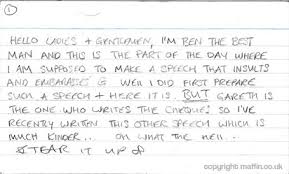 1
HELLO LADIES + GENTLEMEN, I'M BEN THE BEST
MAN AND THIS IS THE PART OF THE DAY WHERE
I AM SUPPOSED TO MAKE A SPEECH THAT INSULTS
AND EMBARASSES G WELL I DID FIRST PREPARE
SUCH A SPEECH + HERE IT IS. BUT GARETH IS
THE ONE WHO WRITES THE CHEQUES SO I'VE
RECENTLY WRITTEN THIS OTHER SPEECH WHICH IS
MUCH KINDER.. OH WHAT THE HELL..
TEAR IT UP
copyright: maffin.co.uk